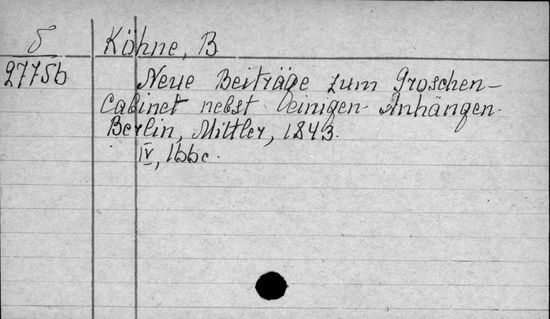 δ
27756
Köhne, B
Neue Beiträge zum Groschen-
Cabinet nebst einigen Anhängen.
Berlin, Mittler, 1843.
IV, 166 c.